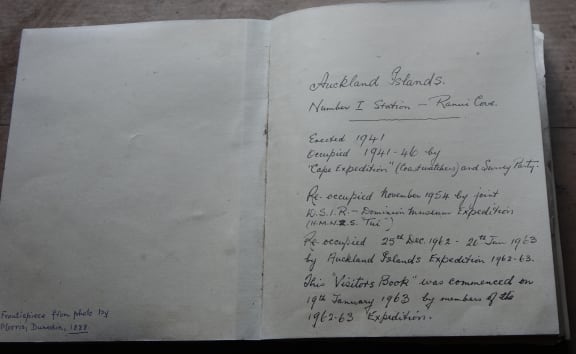 Frontispiece from photo by
Morris, Dunedin, 1888
Auckland Islands.
Number I Station - Ranui Cove.
Erected 1941
Occupied 1941-46 by
"Cape Expedition" (Coastwatchers) and Survey Party.
Re-occupied November 1954 by joint
D.S.I.R. - Dominion Museum Expedition
(H.M.N.Z.S. Tui")
Re-occupied 25th Dec. 1962 - Jan 1963
by Auckland Islands Expedition 1962-63.
This "Visitors Book" was commenced on
19th January 1963 by members of the
1962-63 Expedition.